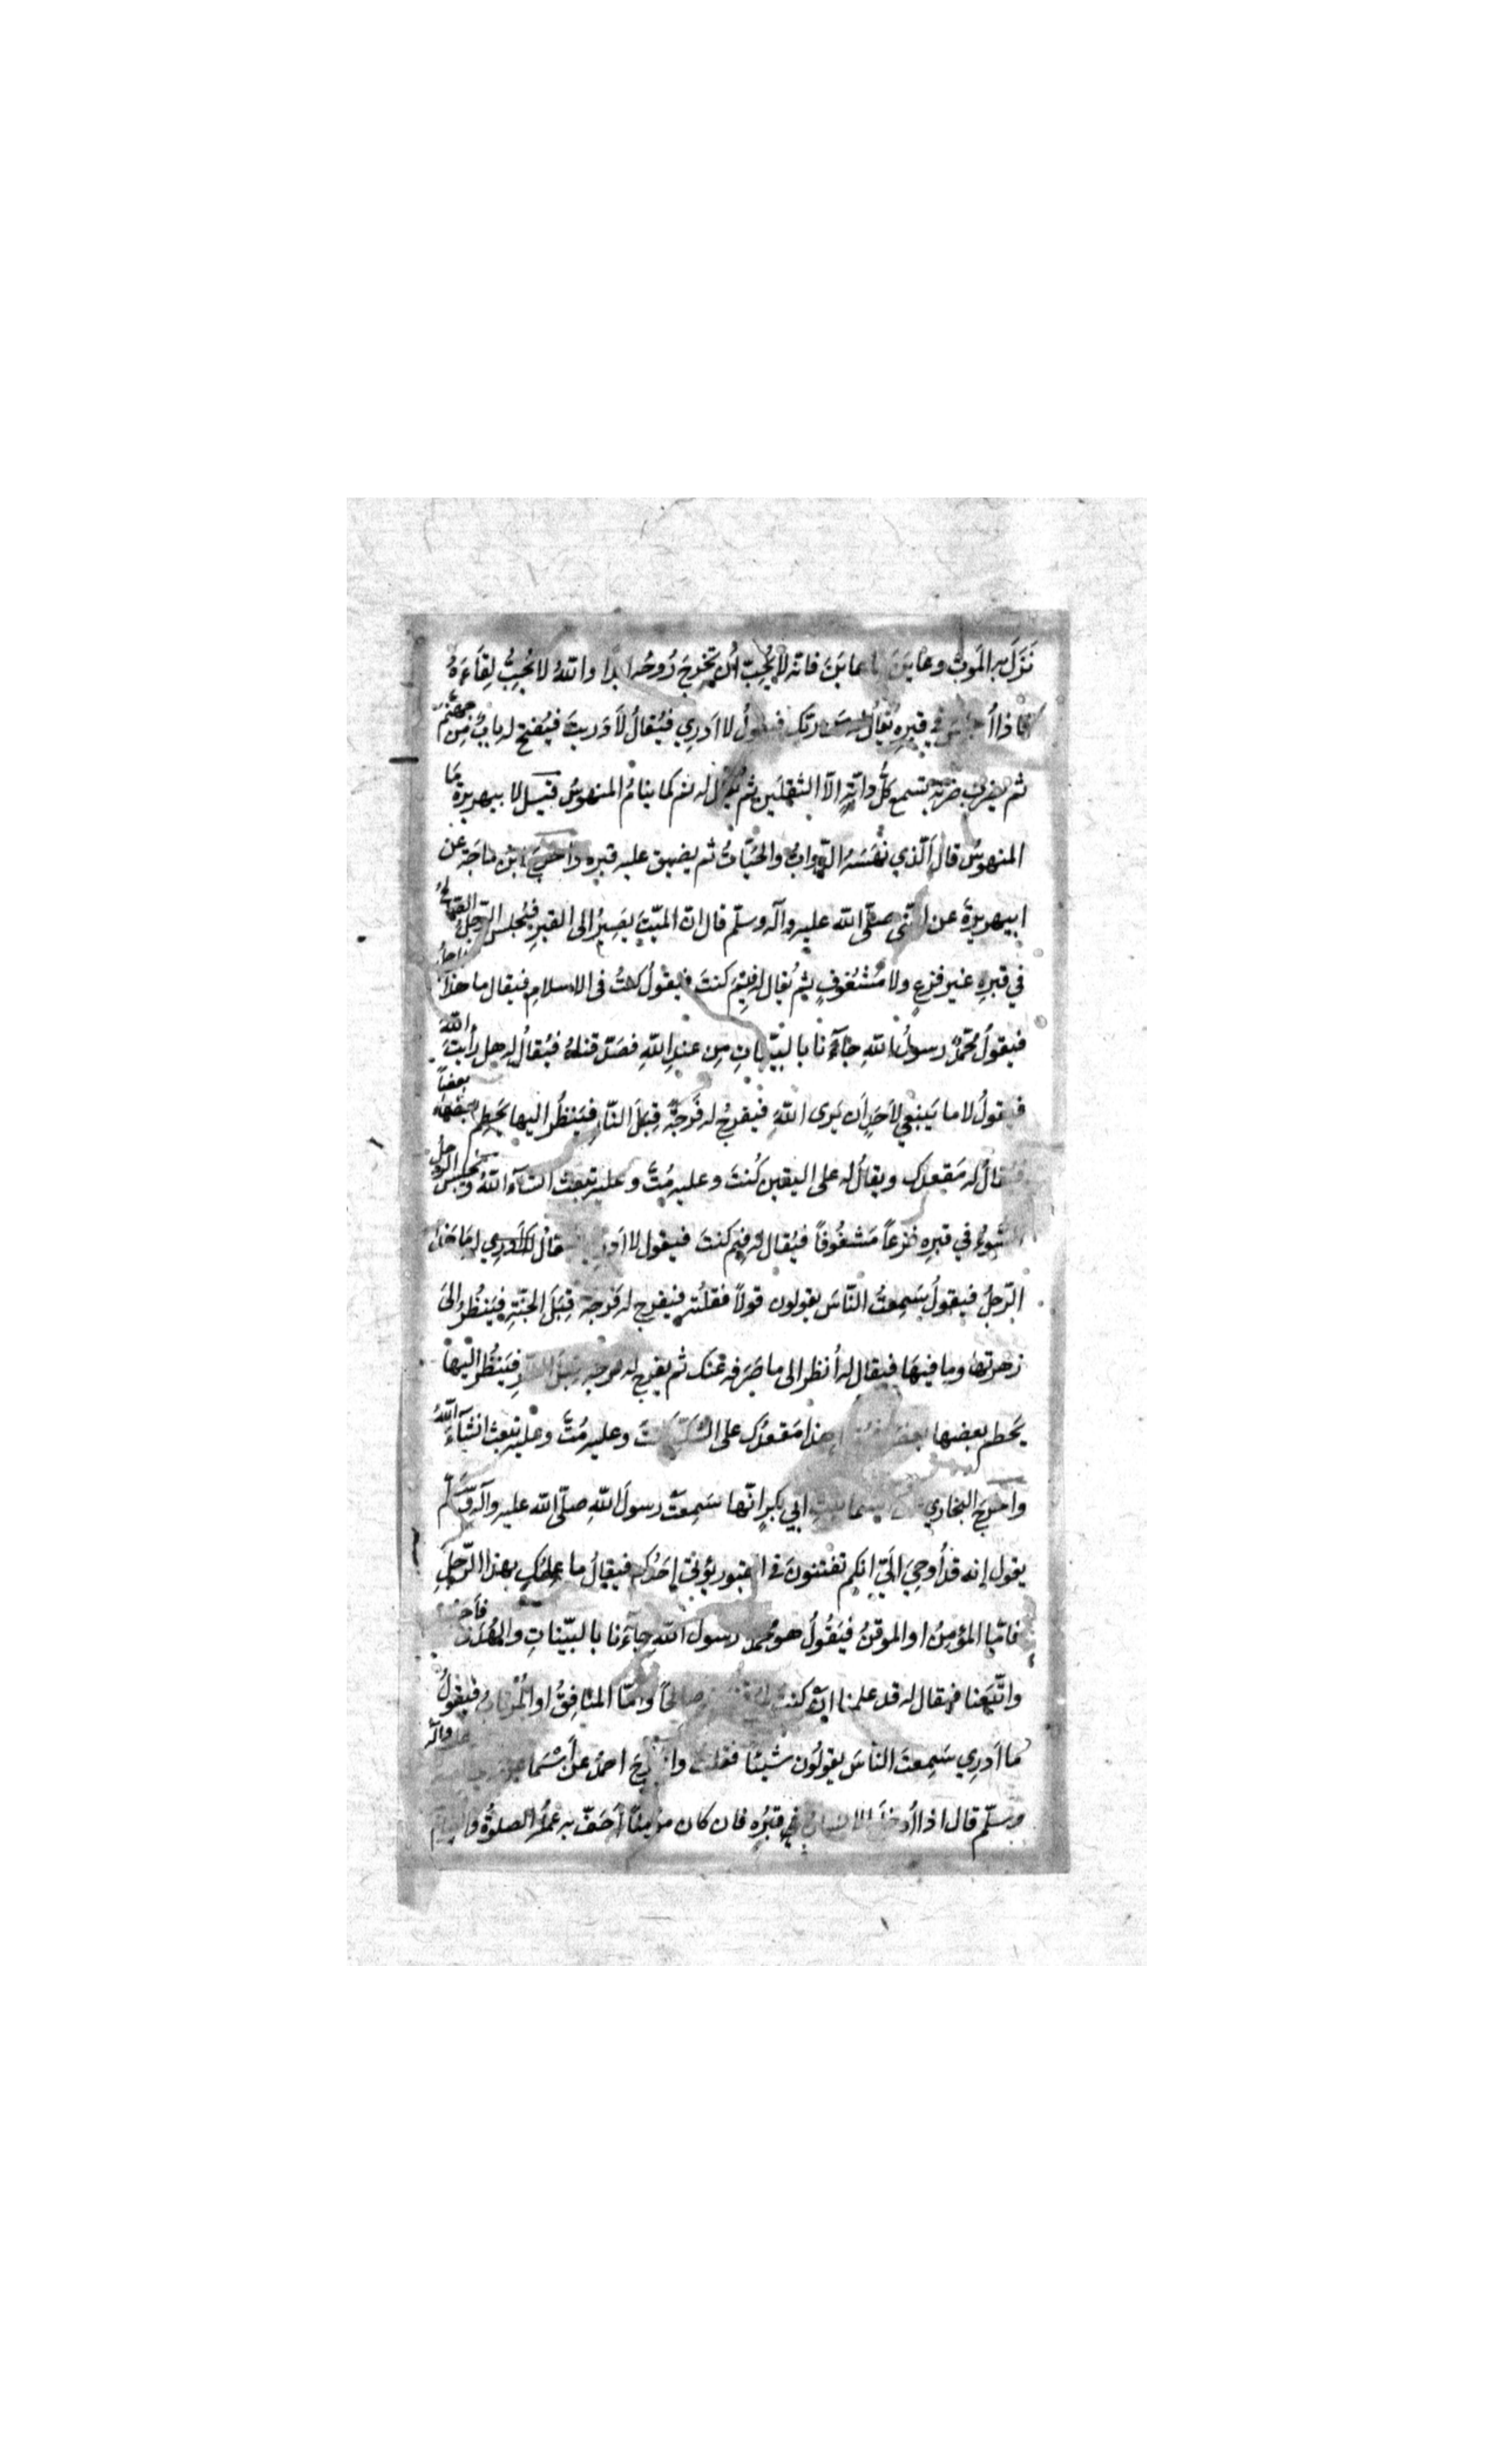 نَزَلَ به المَوتُ وعايَنَ ما عايَنَ فانه لا يُحِبّ أن تخرجَ رُوحُه ابدا واللهُ لا يُحِبُّ لِقَاءَهُ
فاذا أُجلسَ في قبرِهِ يُقالُ من ربّك فيقولُ لا ادري فيُقالُ لَا دَريتَ فيُفتح له بابٌ مِن جهنّم
ثم يضرب ضربة تسمع كلُّ دابّةٍ الّا الثقلين ثم يُقال له نم كما ينامُ المنهوسُ قيل لابيهريرة مَا
المنهوسُ قال الّذي نَهَسَهُ الدّوابُّ والحَيّاتُ ثم يضيق عليه قبره واخرجَ ابن ماجَة عن
ابيهريرةَ عن النبى صلّى الله عليه وآله وسلّم قال انّ الميّتَ يَصِيرُ الى القبرِ فيُجلس الرّجلُ الصّالحُ
في قبرِه غير فزعٍ ولا مَشغوفٍ ثم يُقال له فيمَ كنتَ فيقولُ كنتُ فى الاسلامِ فيقال ما هذا الرجلُ
فيقولُ محمّدٌ رسولُ اللهِ جاءَنا بالبيّناتِ مِن عندِ اللهِ فصَدّقناهُ فيُقالُ له هل رأيتَ اللهَ
فيقولُ لا ما يَنبغي لاحَدٍ أن يَرى اللهَ فيفرجُ له فَرجَةٌ قِبَلَ النّارِ فيَنظُر اليها يَحطِم بعضُها بعضاً
له مَقعدك ويقالُ له على اليقين كُنتَ وعليه مُتَّ وعليه تبعث انشاء اللهُ ويجلس الرجلُ
السُّوءُ في قبرِه فزعاً مَشغُوفاً فيُقال له فيم كنتَ فيقول لا ادري فيقالُ له ما هذا
الرّجلُ فيقولُ سَمِعتُ النّاسَ يقولون قولاً فقلتُه فيفرج له فَرجة قِبَلَ الجنّةِ فيَنظُرُ الىَ
زهرتها وما فيهَا فيقال له أنظر الى ما صَرَفه عنك ثم يفرج له فرجة قِبَلَ النّارِ فيَنظُر اليها
يَحطم بعضها بعضا هذا مَقعدُك على الشكّ كنتَ وعليه مُتَّ وعليه تبعث انشآءَ اللهُ
واخرجَ البخاري عن اسما بنتِ ابي بكرٍ انّها سَمِعَتْ رسولَ اللهِ صلّى الله عليه وآله وسلّم
يقول إنه قد أُوحِيَ اليَّ انكم تفتنونَ فى القبور يؤتى احَدُكم فيقالُ ما عِلمُك بهذا الرّجلِ
فامّا المؤمِنُ او الموقنُ فيَقُولُ هو محمدٌ رسول اللهِ جاءَنا بالبيّناتِ والهُدَى
واتّبعنا فيقال له قد علمنا ان كنتَ صالحًا وامّا المنافِقُ او المُرتابُ فيقولُ
ما ادري سَمِعتُ الناسَ يقولُون شيئًا فقلتُ واخرجَ احمدُ عن أسْمَا عليه وآله
وسلّم قال اذا أُدخلَ الانسانُ في قبرِه فان كان مؤمِنًا أحَفّ به عمَلُه الصلوةُ والصيامُ